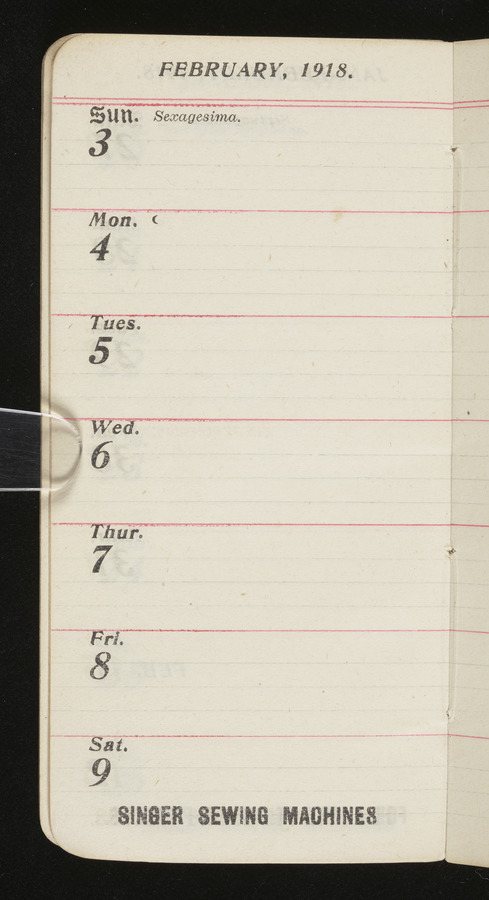 FEBRUARY, 1918.
Sun. Sexagesima.
3
Mon. ☾
4
Tues.
5
Wed.
6
Thur.
7
Fri.
8
Sat.
9
SINGER SEWING MACHINES